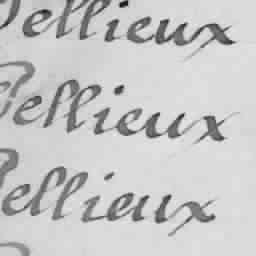 Pellieux
Pellieux
Pellieux